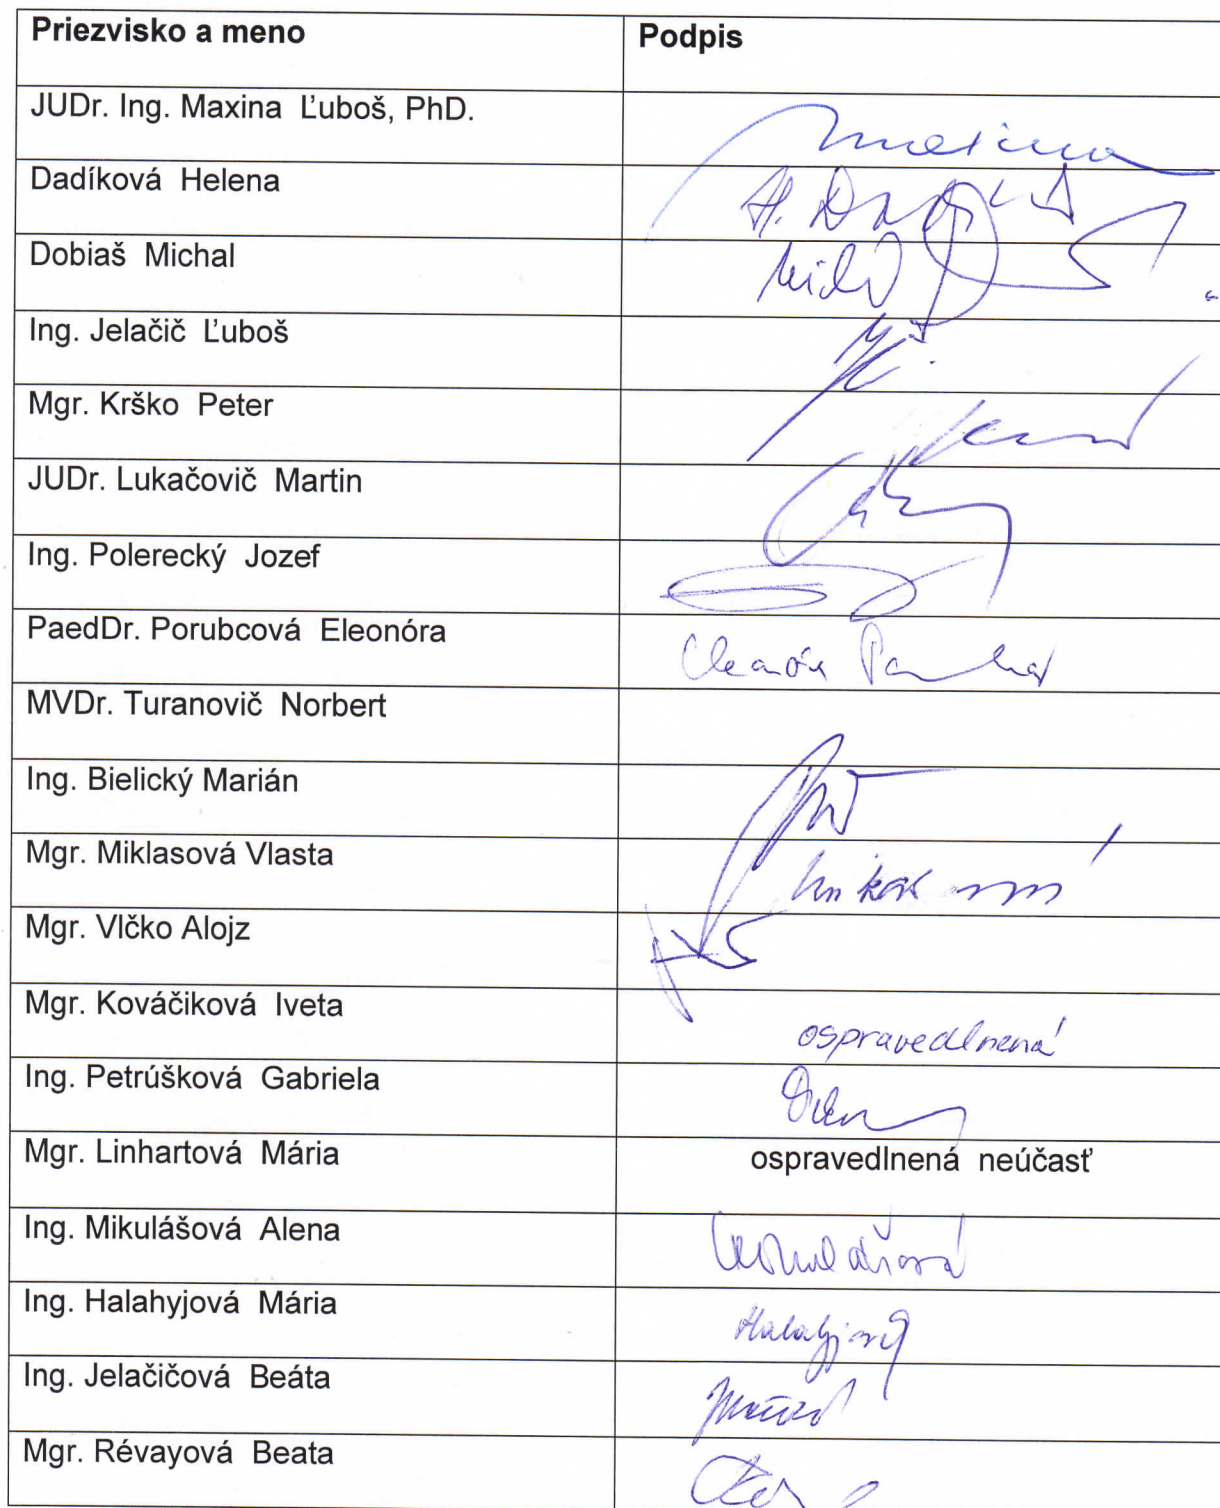 Priezvisko a meno Podpis
JUDr. Ing. Maxina Ľuboš, PhD.
Dadíková Helena
Dobiaš Michal
Ing. Jelačič Ľuboš
Mgr. Krško Peter
JUDr. Lukačovič Martin
Ing. Polerecký Jozef
PaedDr. Porubcová Eleonóra
MVDr. Turanovič Norbert
Ing. Bielický Marián
Mgr. Miklasová Vlasta
Mgr. Vlčko Alojz
Mgr. Kováčiková Iveta ospravedlnená
Ing. Petrúšková Gabriela
Mgr. Linhartová Mária ospravedlnená neúčasť
Ing. Mikulášová Alena
Ing. Halahyjová Mária
Ing. Jelačičová Beáta
Mgr. Révayová Beata